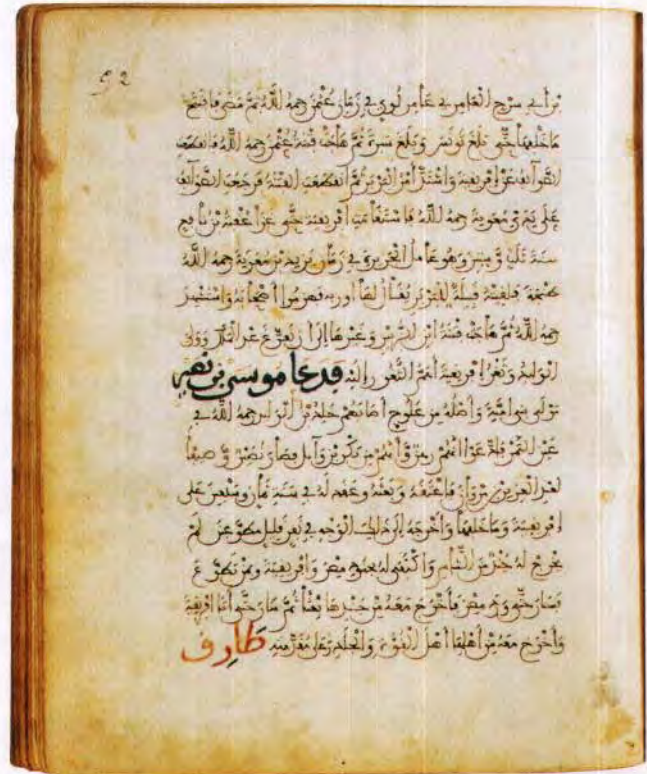 52
بن أبي سرح العامري عامر لؤي في زمان عثمن رحمه الله ثم مضى فافتتح
ما خلفها حتى بلغ تونس وبلغ سبرة ثم هاجت فتنة عثمن رحمه الله فانقطعت
الطوائف عن افريقية واشتد أمر البربر ثم انقطعت الفتنة فرجعت الطوائف
على يدي معوية رحمه الله فاستقامت افريقية حتى غزا عقبة بن نافع
سنة ثلث وستين وهو عامل في زمان يزيد بن معوية رحمه الله
فلقيته قبيلة للبربر يقال لها أوربه فهزموا أصحابه واستشهد
رحمه الله ثم هاجت فتنة ابن الزبير وغيرها إلى أن عبد الملك وولي
الوليد وثغر افريقية أهم الثغور إليه فدعا موسى بن نصير
مولى بني امية وأصله من علوج أصابهم خلد بن الوليد رحمه الله في
عين التمر فادعوا أنهم رهن وأنهم من بكر بن وايل فصار نصير وصيفا
لعبد العزيز بن مروان فاعتقه وبعثه وعقد له في سنة ثمان وسبعين على
افريقية وما خلفها وأخرجه إلى ذلك الوجه في نفر قليل مطوعين لم
يخرج له جند من الشام واكتفى له بجند مصر وافريقية ومن تطوع
فسار حتى ورد مصر فأخرج معه من جندها بعثا ثم سار حتى أتا افريقية
وأخرج معه من أهلها أهل القوة والجلد وعلى مقدمته طارق